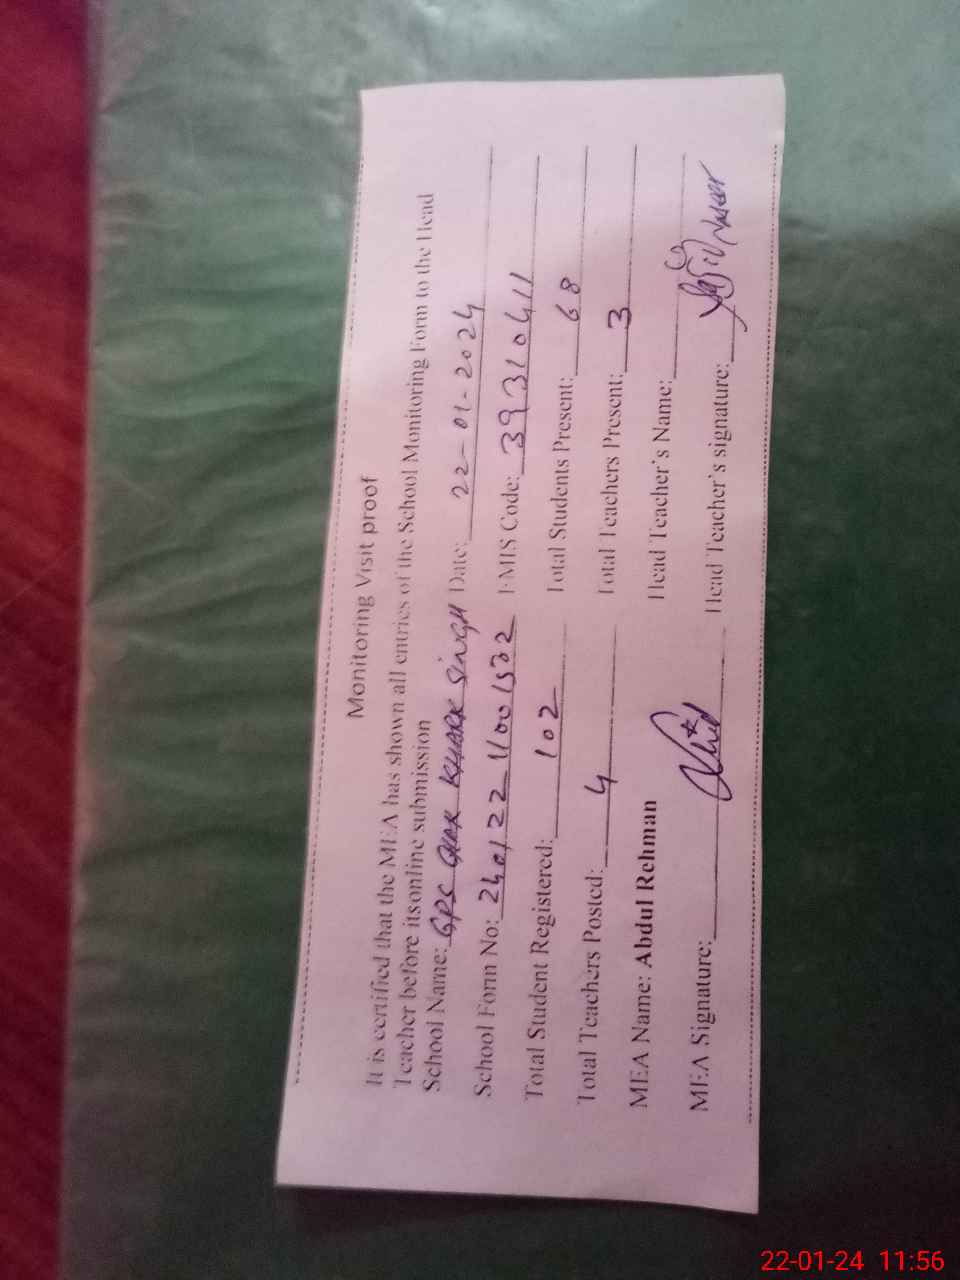 Monitoring Visit proof
It is certified that the MEA has shown all entries of the School Monitoring Form to the Head
Teacher before its online submission
School Name: GPS KHARK SINGH Date: 22-01-2024
School Form No: EMIS Code: 39310411
Total Student Registered: 102 Total Students Present: 68
Total Teachers Posted: 4 Total Teachers Present: 3
MEA Name: Abdul Rehman Head Teacher's Name:
MEA Signature: Head Teacher's signature:
22-01-24 11:56